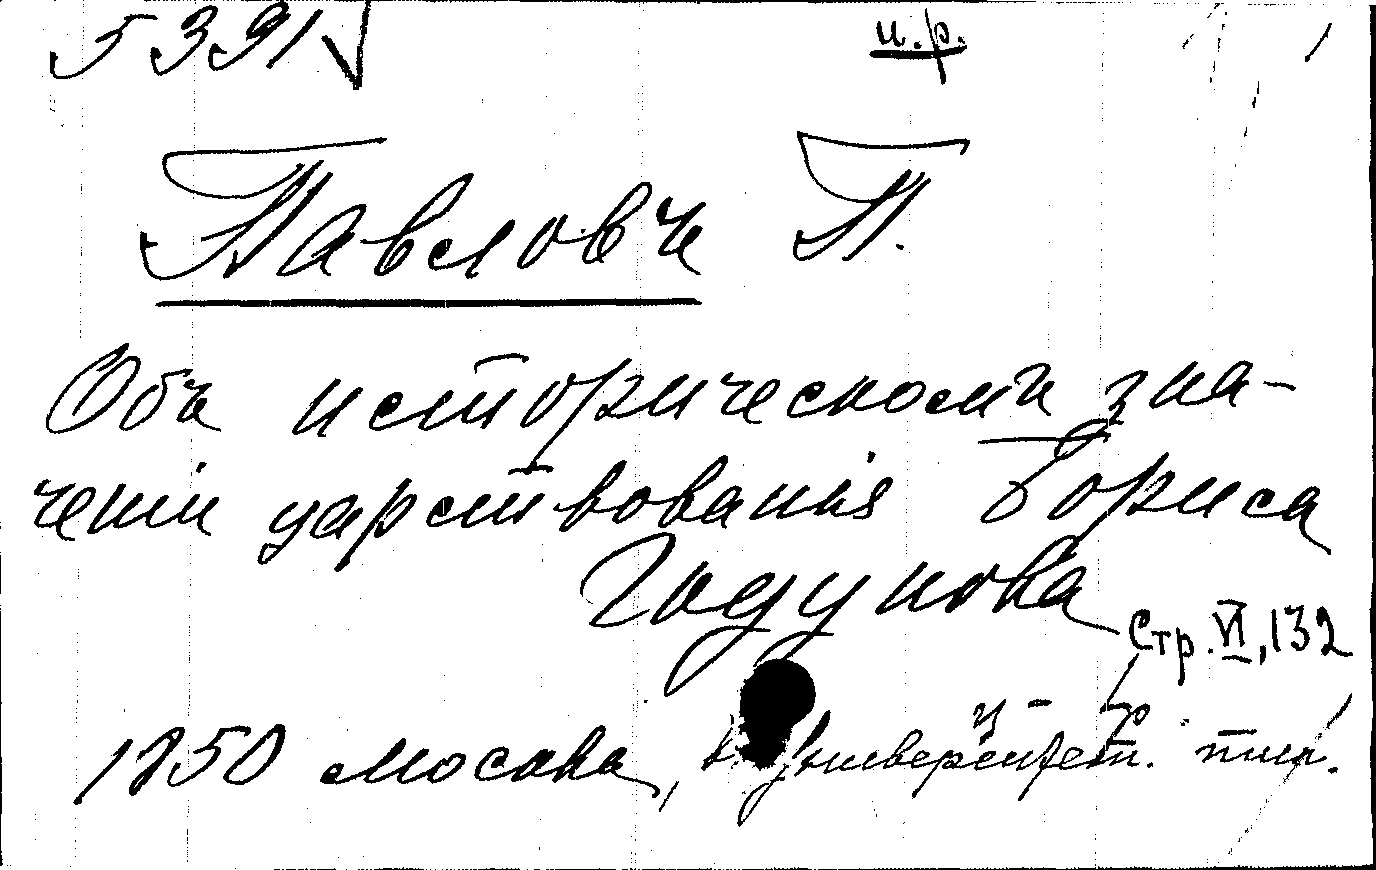 5391 и.р.
Павловъ П.
Объ историческомъ зна-
ченіи царствованія Бориса
Годунова
Стр. VI, 132
1850 Москва, въ Университет. тип.